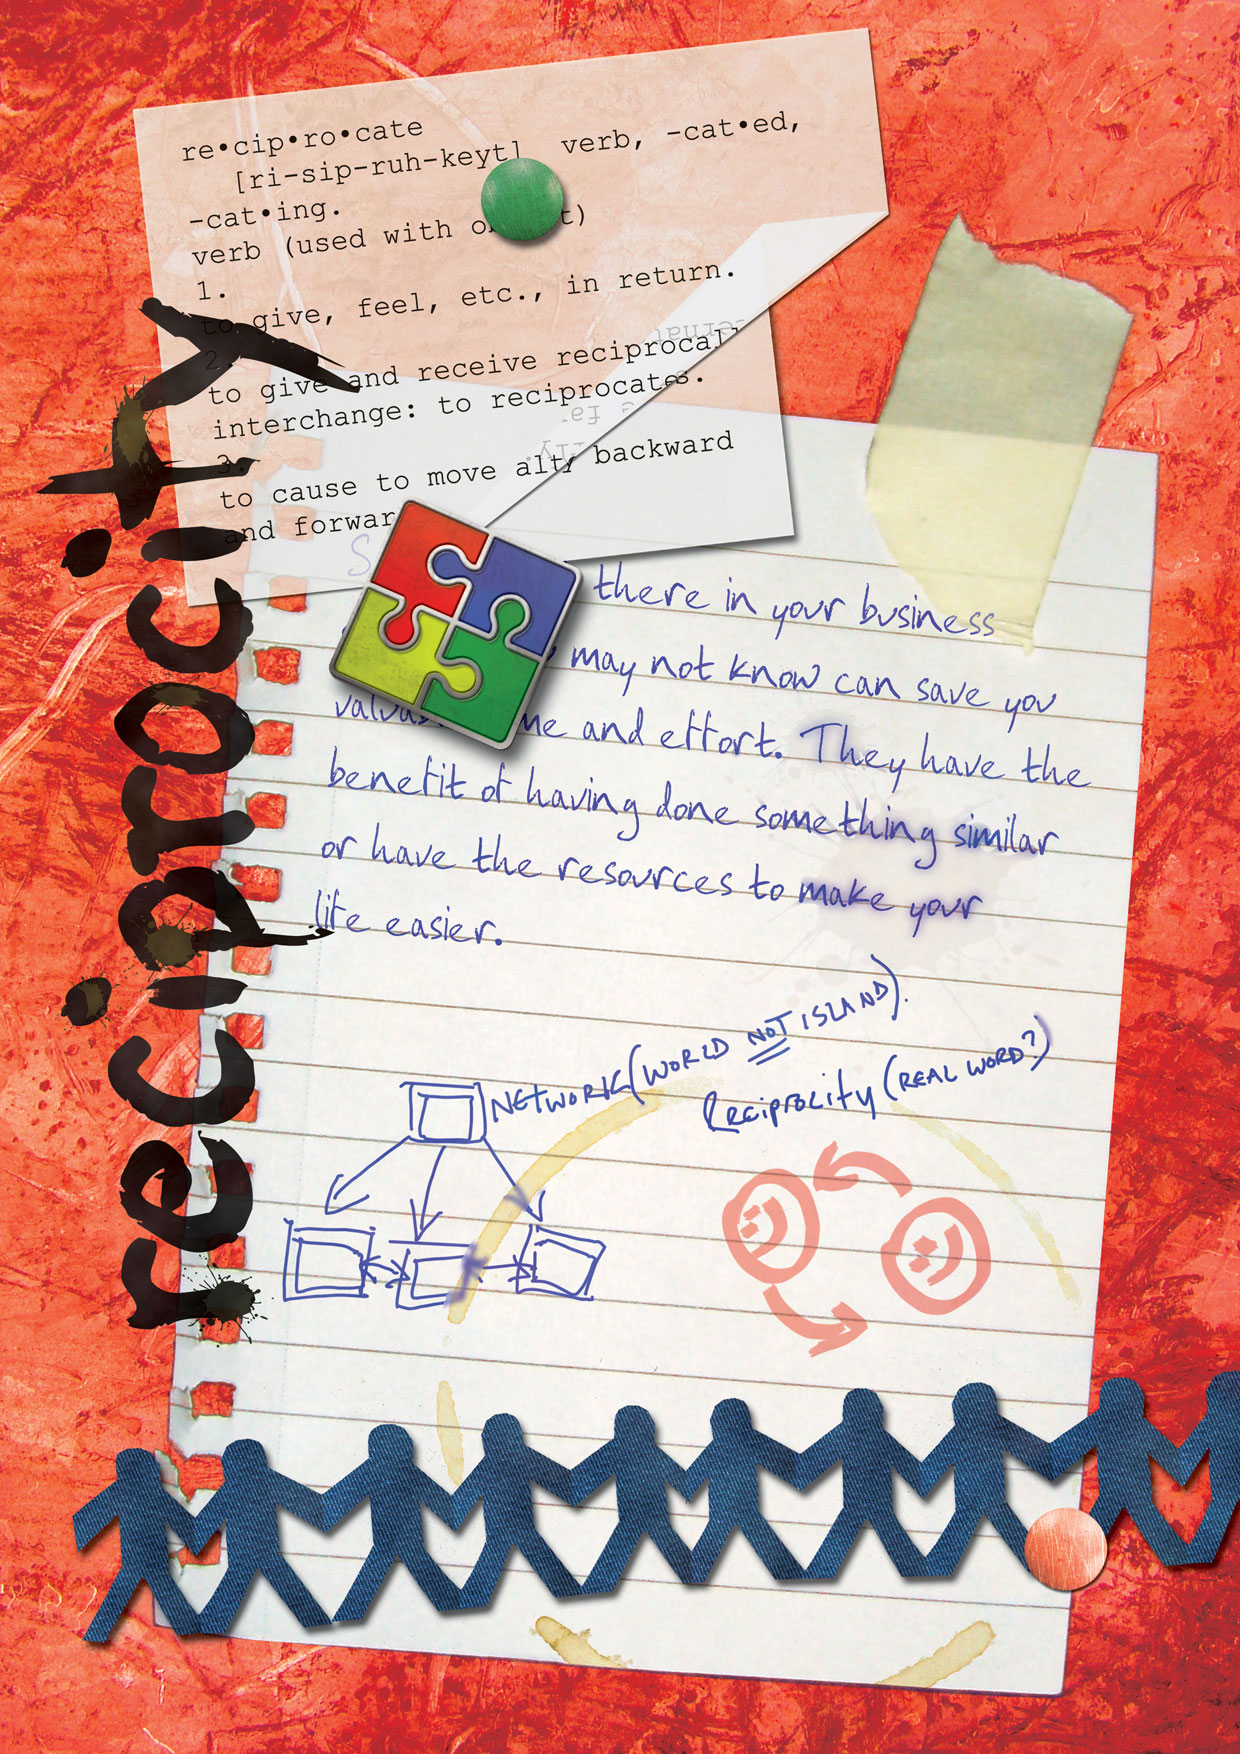 re•cip•ro•cate
[ri-sip-ruh-keyt] verb, -cat•ed,
-cat•ing.
verb (used with
1.
to give, feel, etc., in return.
2.
to give and receive
interchange: to reciprocate
3.
to cause to move backward
and
reciprocity
there in your business
may not know can save you
and effort. They have the
benefit of having done something similar
or have the resources to make your
life easier.
NETWORK (WORLD NOT ISLAND).
RECIPROCITY (REAL WORD?)